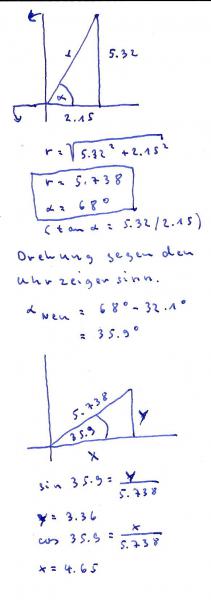 1
5.32
α
2.15
r = √5.32² + 2.15²
r = 5.738
α = 68°
(tan α = 5.32/2.15)
Drehung gegen den
Uhrzeigersinn.
α neu = 68° - 32.1°
= 35.9°
5.738
y
35.9
x
sin 35.9 = y/5.738
y = 3.36
cos 35.9 = x/5.738
x = 4.65